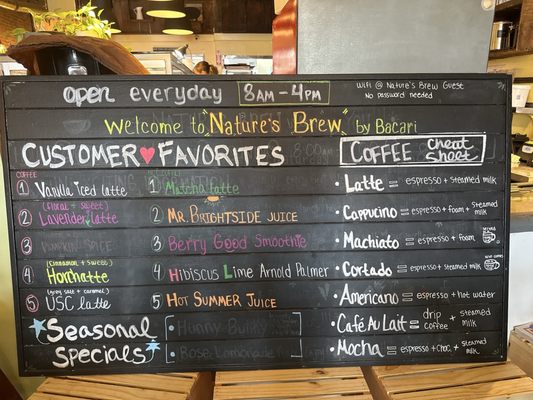 open everyday 8AM-4PM
Wifi @ Nature's Brew Guest
No password needed
Welcome to "Nature's Brew" by Bacari
CUSTOMER ♥ FAVORITES
COFFEE
① Vanilla iced latte
(floral + sweet)
② Lavender latte
③ Pumpkin Spice
(cinnamon + sweet)
④ Horchatte
(grey salt + caramel)
⑤ USC latte
① Matcha latte
② Mr. Brightside Juice
③ Berry Good Smoothie
④ Hibiscus Lime Arnold Palmer
⑤ Hot Summer Juice
COFFEE cheat sheet
• Latte = espresso + steamed milk
• Cappucino = espresso + foam + steamed milk
• Machiato = espresso + foam
• Cortado = espresso + steamed milk
• Americano = espresso + hot water
• Café Au Lait = drip coffee + steamed milk
• Mocha = espresso + choc. + steamed milk
Seasonal Specials
• Hunny Bunny
• Rose Lemonade